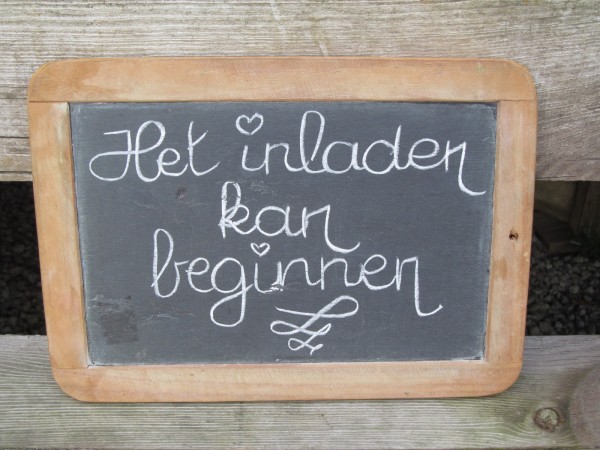 Het inladen
kan
beginnen